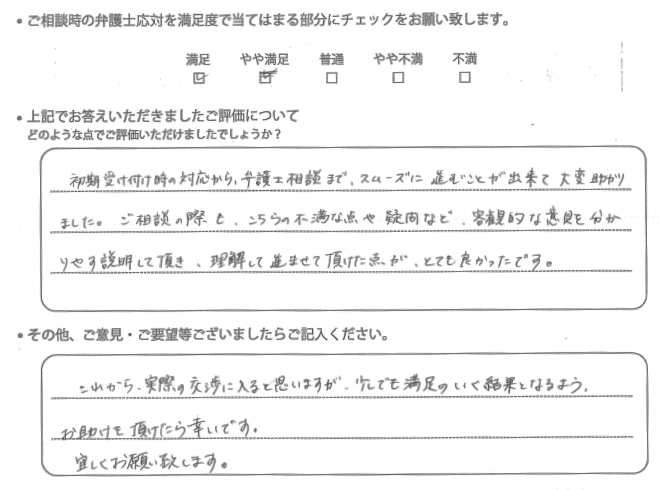 • ご相談時の弁護士応対を満足度で当てはまる部分にチェックをお願い致します。
満足 やや満足 普通 やや不満 不満
☑ ☑ □ □ □
• 上記でお答えいただきましたご評価について
どのような点でご評価いただけましたでしょうか？
初期受け付け時の対応から、弁護士相談まで、スムーズに進むことが出来て大変助かり
ました。ご相談の際も、こちらの不満な点や疑問など、客観的な意見を分か
りやす説明して頂き、理解して進ませて頂けた点が、とても良かったです。
• その他、ご意見・ご要望等ございましたらご記入ください。
これから、実際の交渉に入ると思いますが、少しでも満足のいく結果となるよう、
お助けを頂けたら幸いです。
宜しくお願い致します。